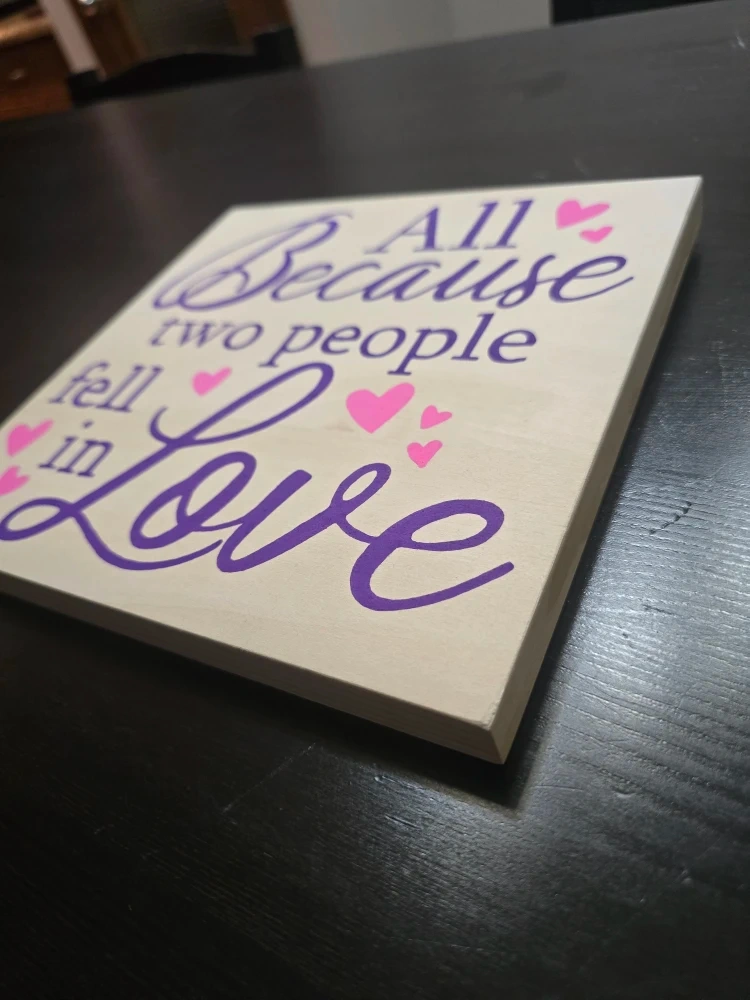 All
Because
two people
fell
in
Love